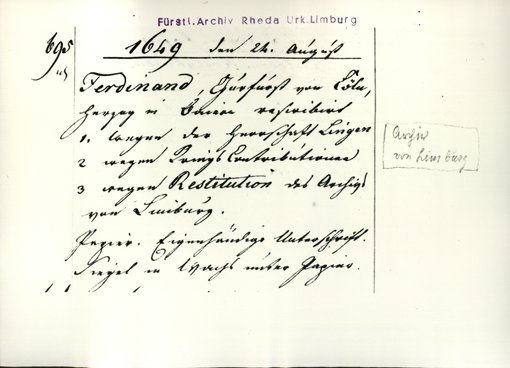 Fürstl. Archiv Rheda Urk. Limburg
695
1649 den 24. August
Ferdinand, Churfürst von Cöln,
Herzog in Baiern rescribirt
1. wegen der Herrschaft Lingen
2 wegen Kriegs Contributionen
3 wegen Restitution des Archivs
von Limburg.
Papier. Eigenhändige Unterschrift.
Siegel in Wachs unter Papier.
Archiv
von Limburg